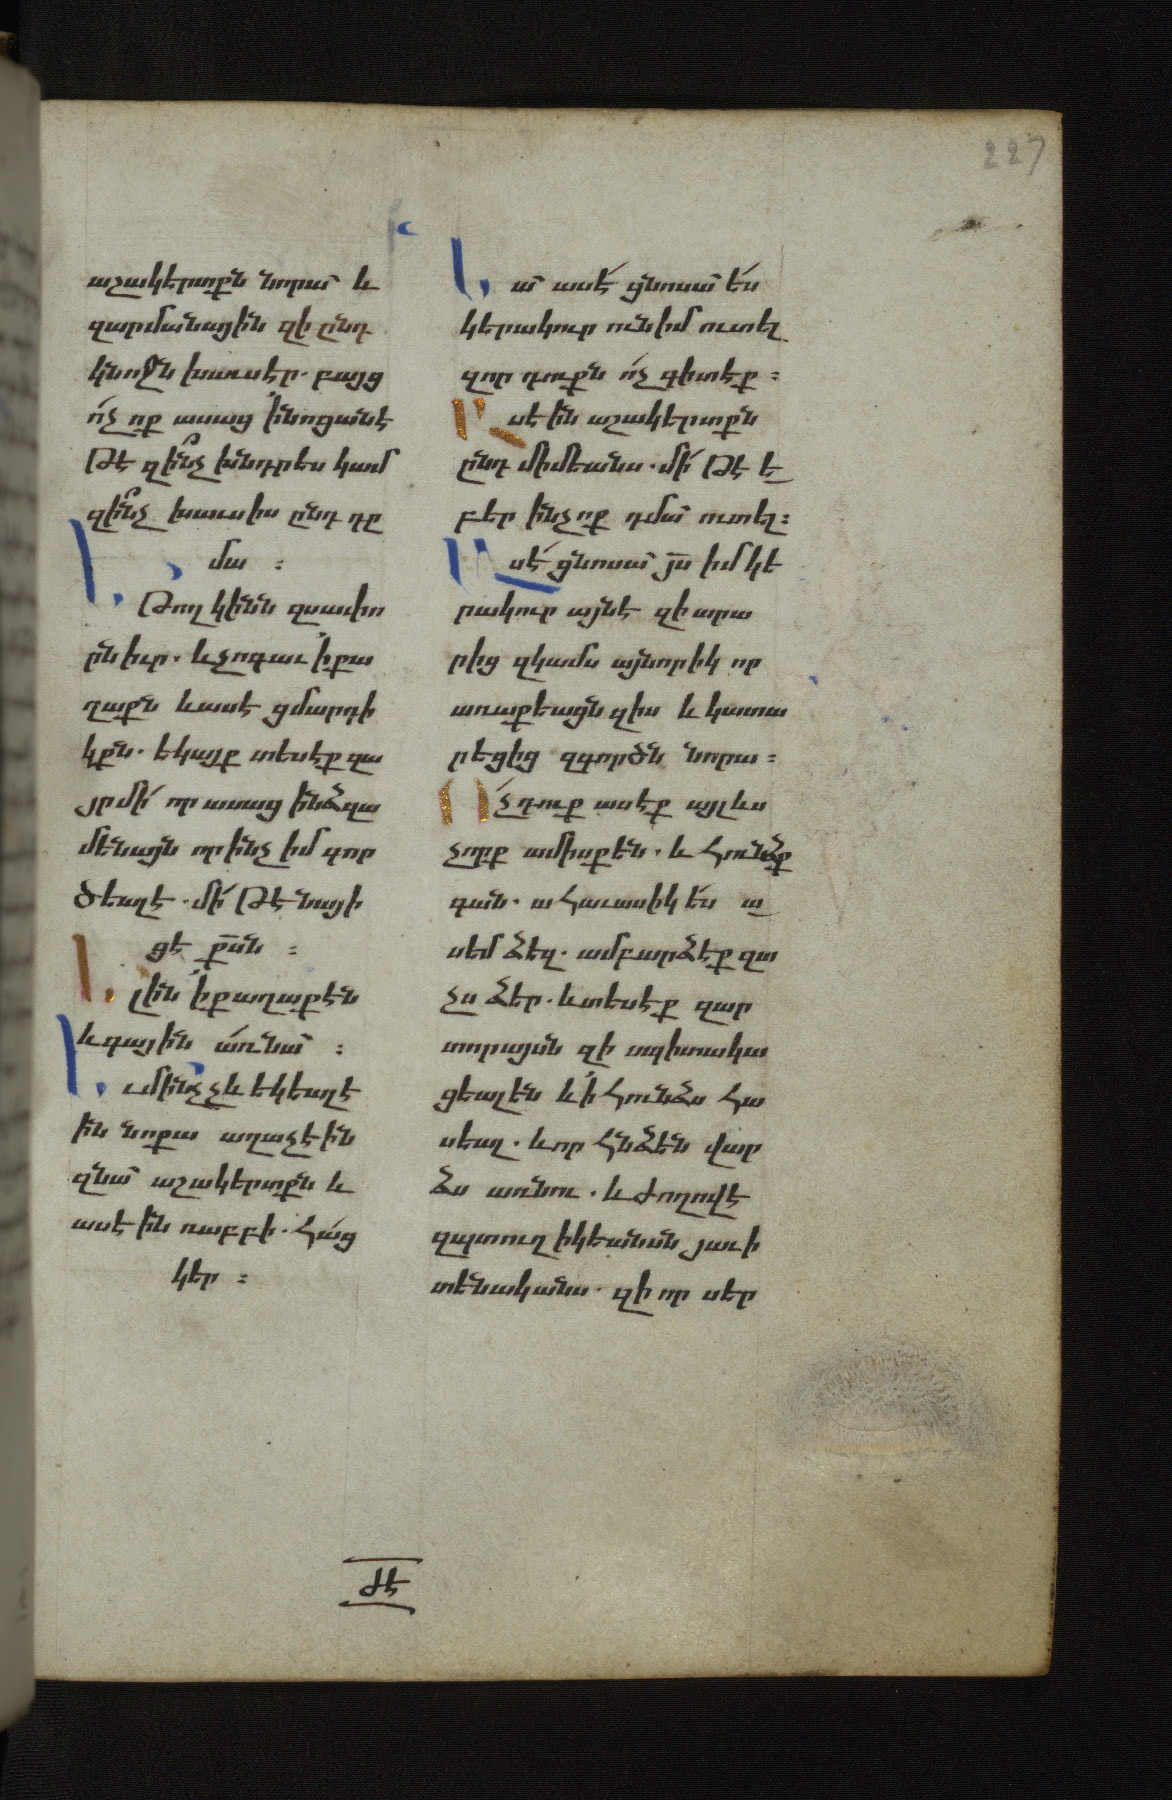 227
աշակերտքն նորա՟ և
զարմանային զի ընդ
կնոջն խաւսէր. բայց
ո՛չ ոք ասաց ՛ինոցանէ
Թէ զի՞նչ խնդրես կամ
զի՞նչ խաւսիս ընդ դը
մա :
Թող կինն զսափո
րն իւր. և չոգաւ ՛իքա
ղաքն և ասէ ցմարդի
կքն. եկայք տեսէք զա
յր մի՛ որ ասաց ինձ զա
մենայն որ ինչ իմ գոր
ծեալ է. մի՛ Թէ նայի
ցէ ք՟սն :
լին ՛իքաղաքէն
և գային ա՛ռ նա՟ :
ւ մինչ չև եկեալ է
ին նոքա աղաչէին
զնա՟ աշակերտքն և
ասէին ռաբբի. հա՛ց
կեր :
ա՟ ասէ՛ ցնոսա՟ ե՛ս
կերակուր ունիմ ուտել
զոր դուքն ո՛չ գիտէք :
Ասէին աշակերտքն
ընդ միմեանս. մի՛ Թէ ե
բեր ինչ ոք դմա՟ ուտել :
Ասէ՛ ցնոսա՟ յ՟ս իմ կե
րակուր այն է զի արա
րից զկամս այնորիկ որ
առաքեացն զիս և կատա
րեցից զգործն նորա :
Ո՛չ դուք ասէք այլ ևս
չորք ամիսք են. և հունձք
գան. ահաւասիկ ե՛ս ա
սեմ ձեզ. ամբարձէք զա
չս ձեր. և տեսէք զար
տորայսն զի սպիտակա
ցեալ են և ՛ի հունձս հա
սեալ. և որ հնձէն վար
ձս առնու. և ժողովէ
զպտուղ ի կեանսն յաւի
տենականս. զի որ սեր
ԺԷ